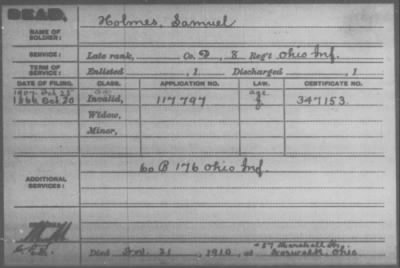 DEAD.
Holmes, Samuel
NAME OF
SOLDIER:
SERVICE:
Late rank, Co. D, 8 Reg't Ohio Inf.
TERM OF
SERVICE:
Enlisted , 1 Discharged , 1
DATE OF FILING. CLASS. APPLICATION NO. LAW. CERTIFICATE NO.
1907 Oct 25 age
1866 Oct 20 Invalid, 117797 347153
Widow,
Minor,
ADDITIONAL
SERVICES:
Co B 176 Ohio Inf.
57 Marshall
Died Nov. 21, 1910, at Norwalk, Ohio